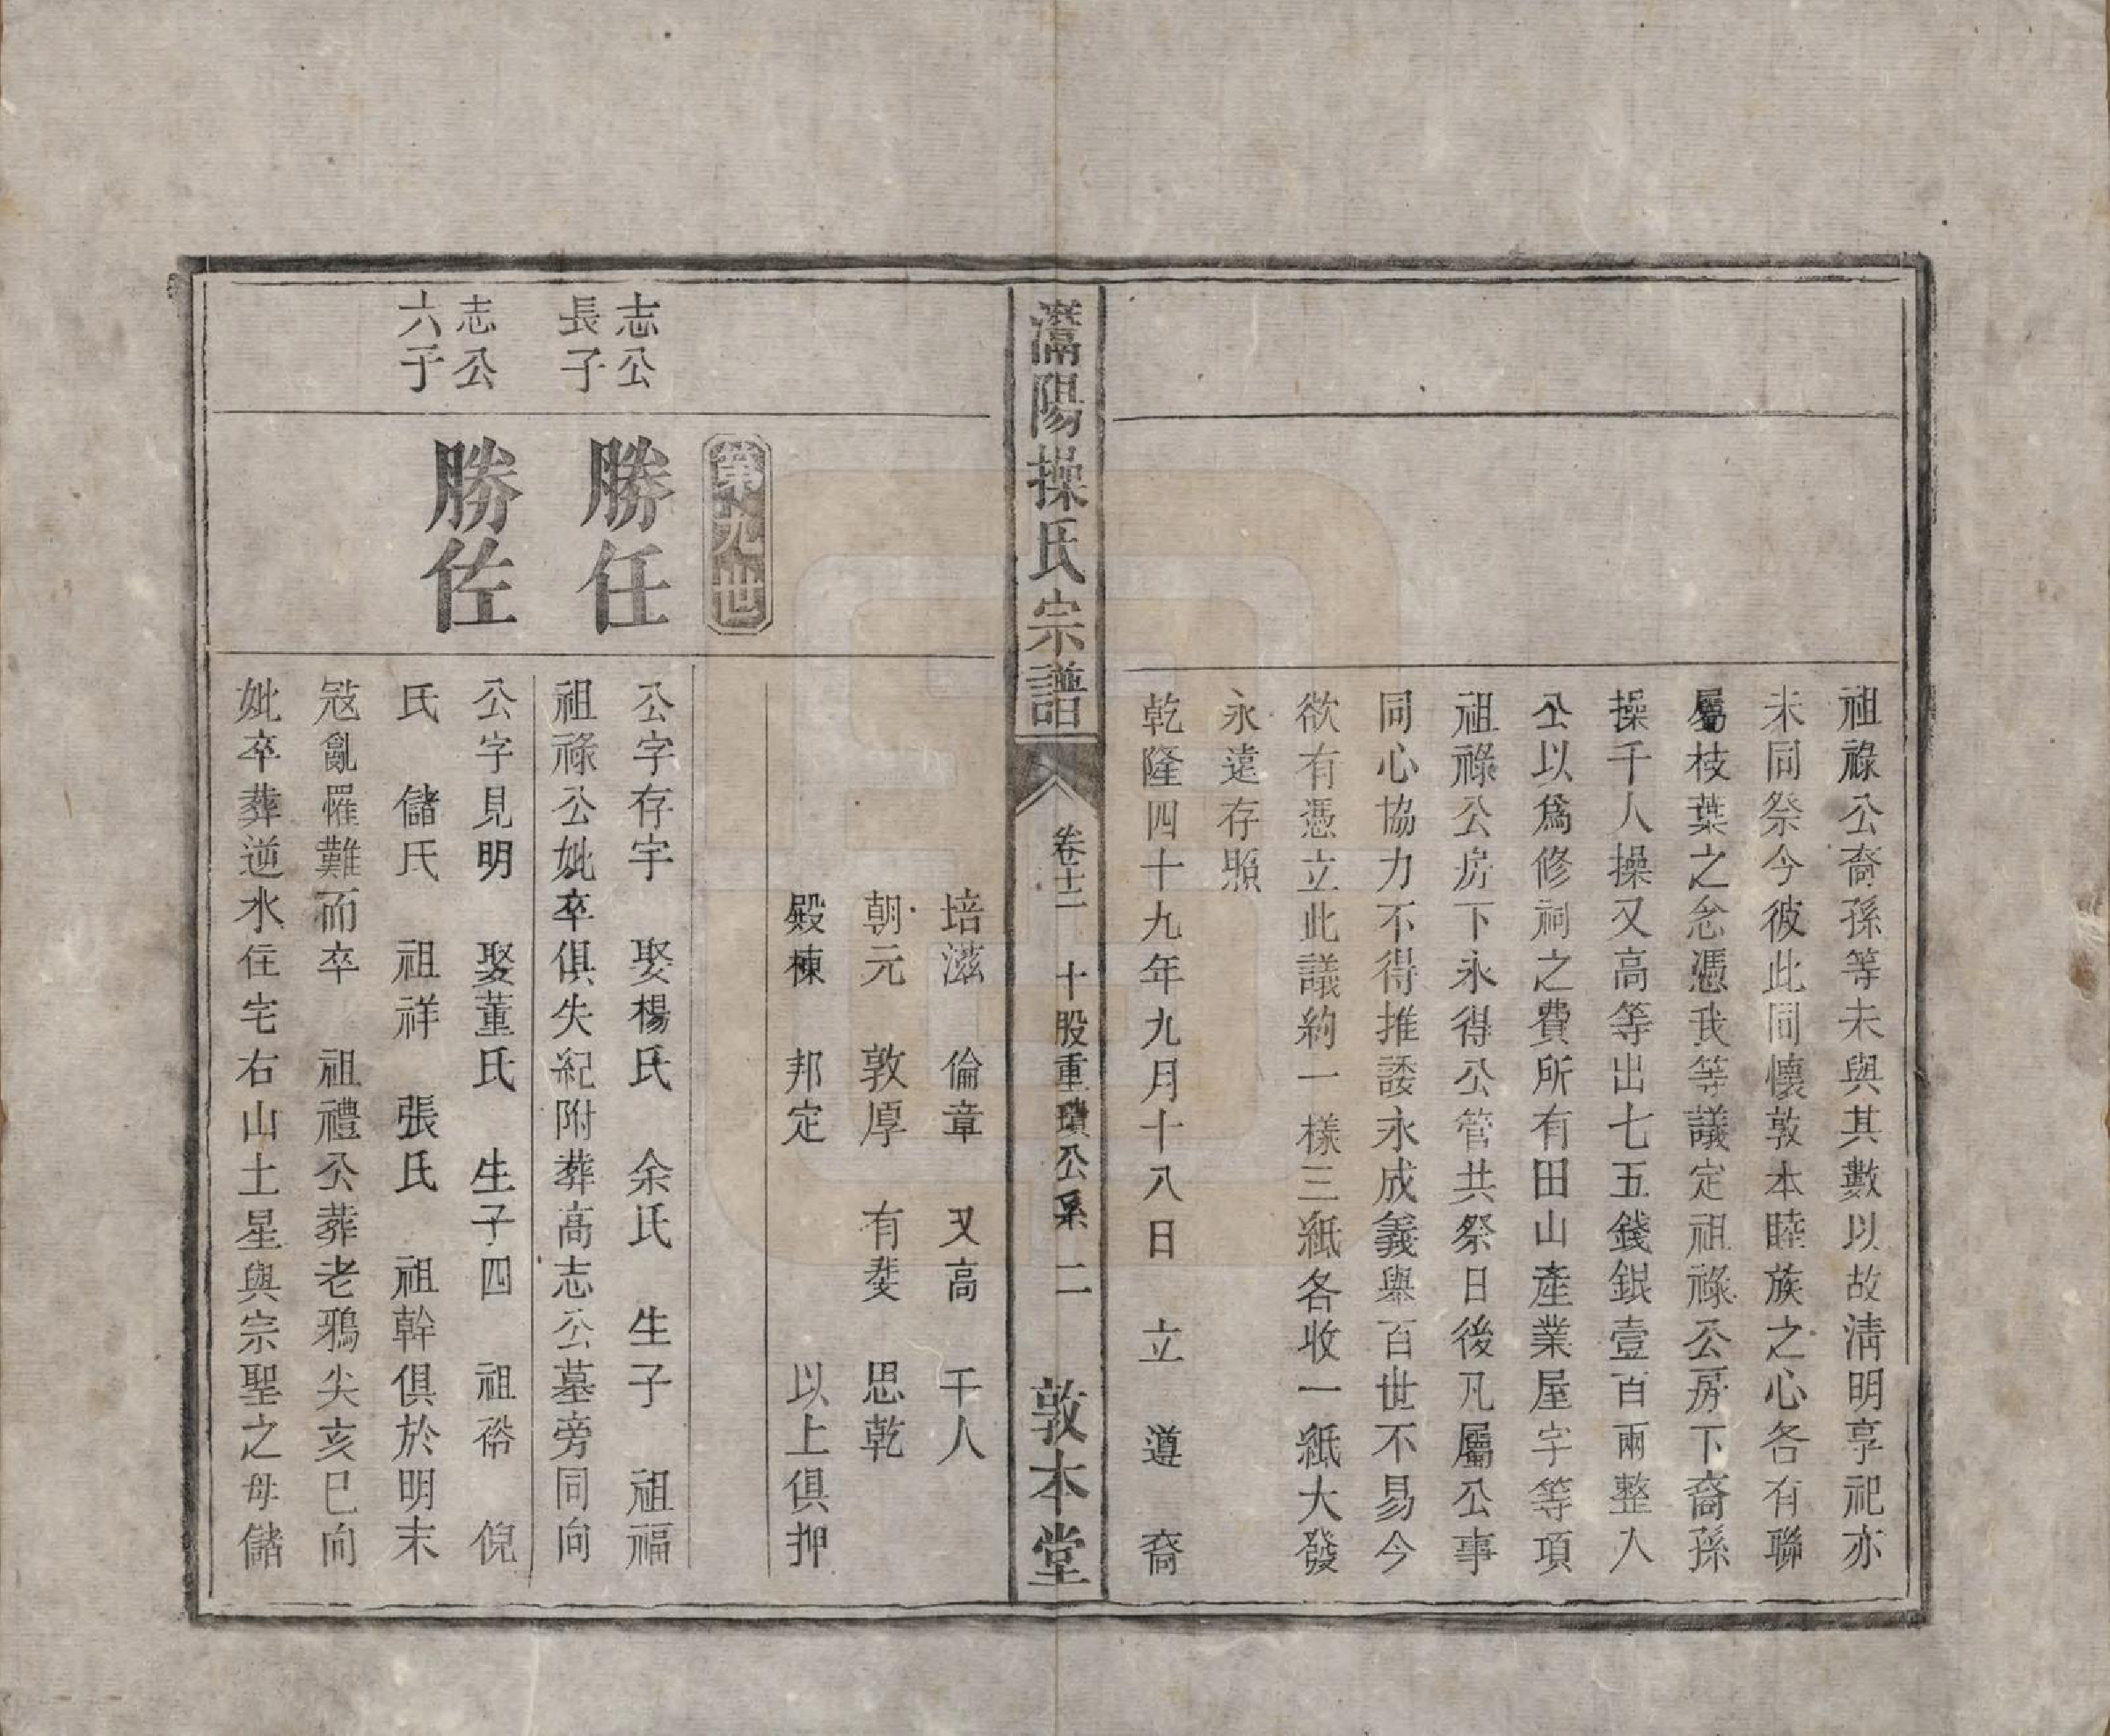 祖祿公裔孫等未與其數以故清明享祀亦
未同祭今彼此同懷敦本睦族之心各有聯
屬枝葉之念憑我等議定祖祿公房下裔孫
操千人操又高等出七五錢銀壹百兩整入
公以爲修祠之費所有田山產業屋字等項
祖祿公房下永得公管共祭日後凡屬公事
同心協力不得推諉永成義舉百世不易今
欲有憑立此議約一樣三紙各收一紙大發
永遠存照
乾隆四十九年九月十八日 立 遵 裔
灊陽操氏宗譜 卷十二 十股重瓚公系 二 敦本堂
培滋 倫章 又高 千人
朝元 敦厚 有斐 思乾
殿棟 邦定 以上俱押
第九世
志公
長子
勝任
公字存宇 娶楊氏 余氏 生子 祖福
祖祿公妣卒俱失紀附葬高志公墓旁同向
志公
六子
勝佐
公字見明 娶董氏 生子四 祖裕 倪
氏 儲氏 祖祥 張氏 祖幹俱於明末
冦亂罹難而卒 祖禮公葬老鴉尖亥巳向
妣卒葬逆水住宅右山土星與宗聖之母儲